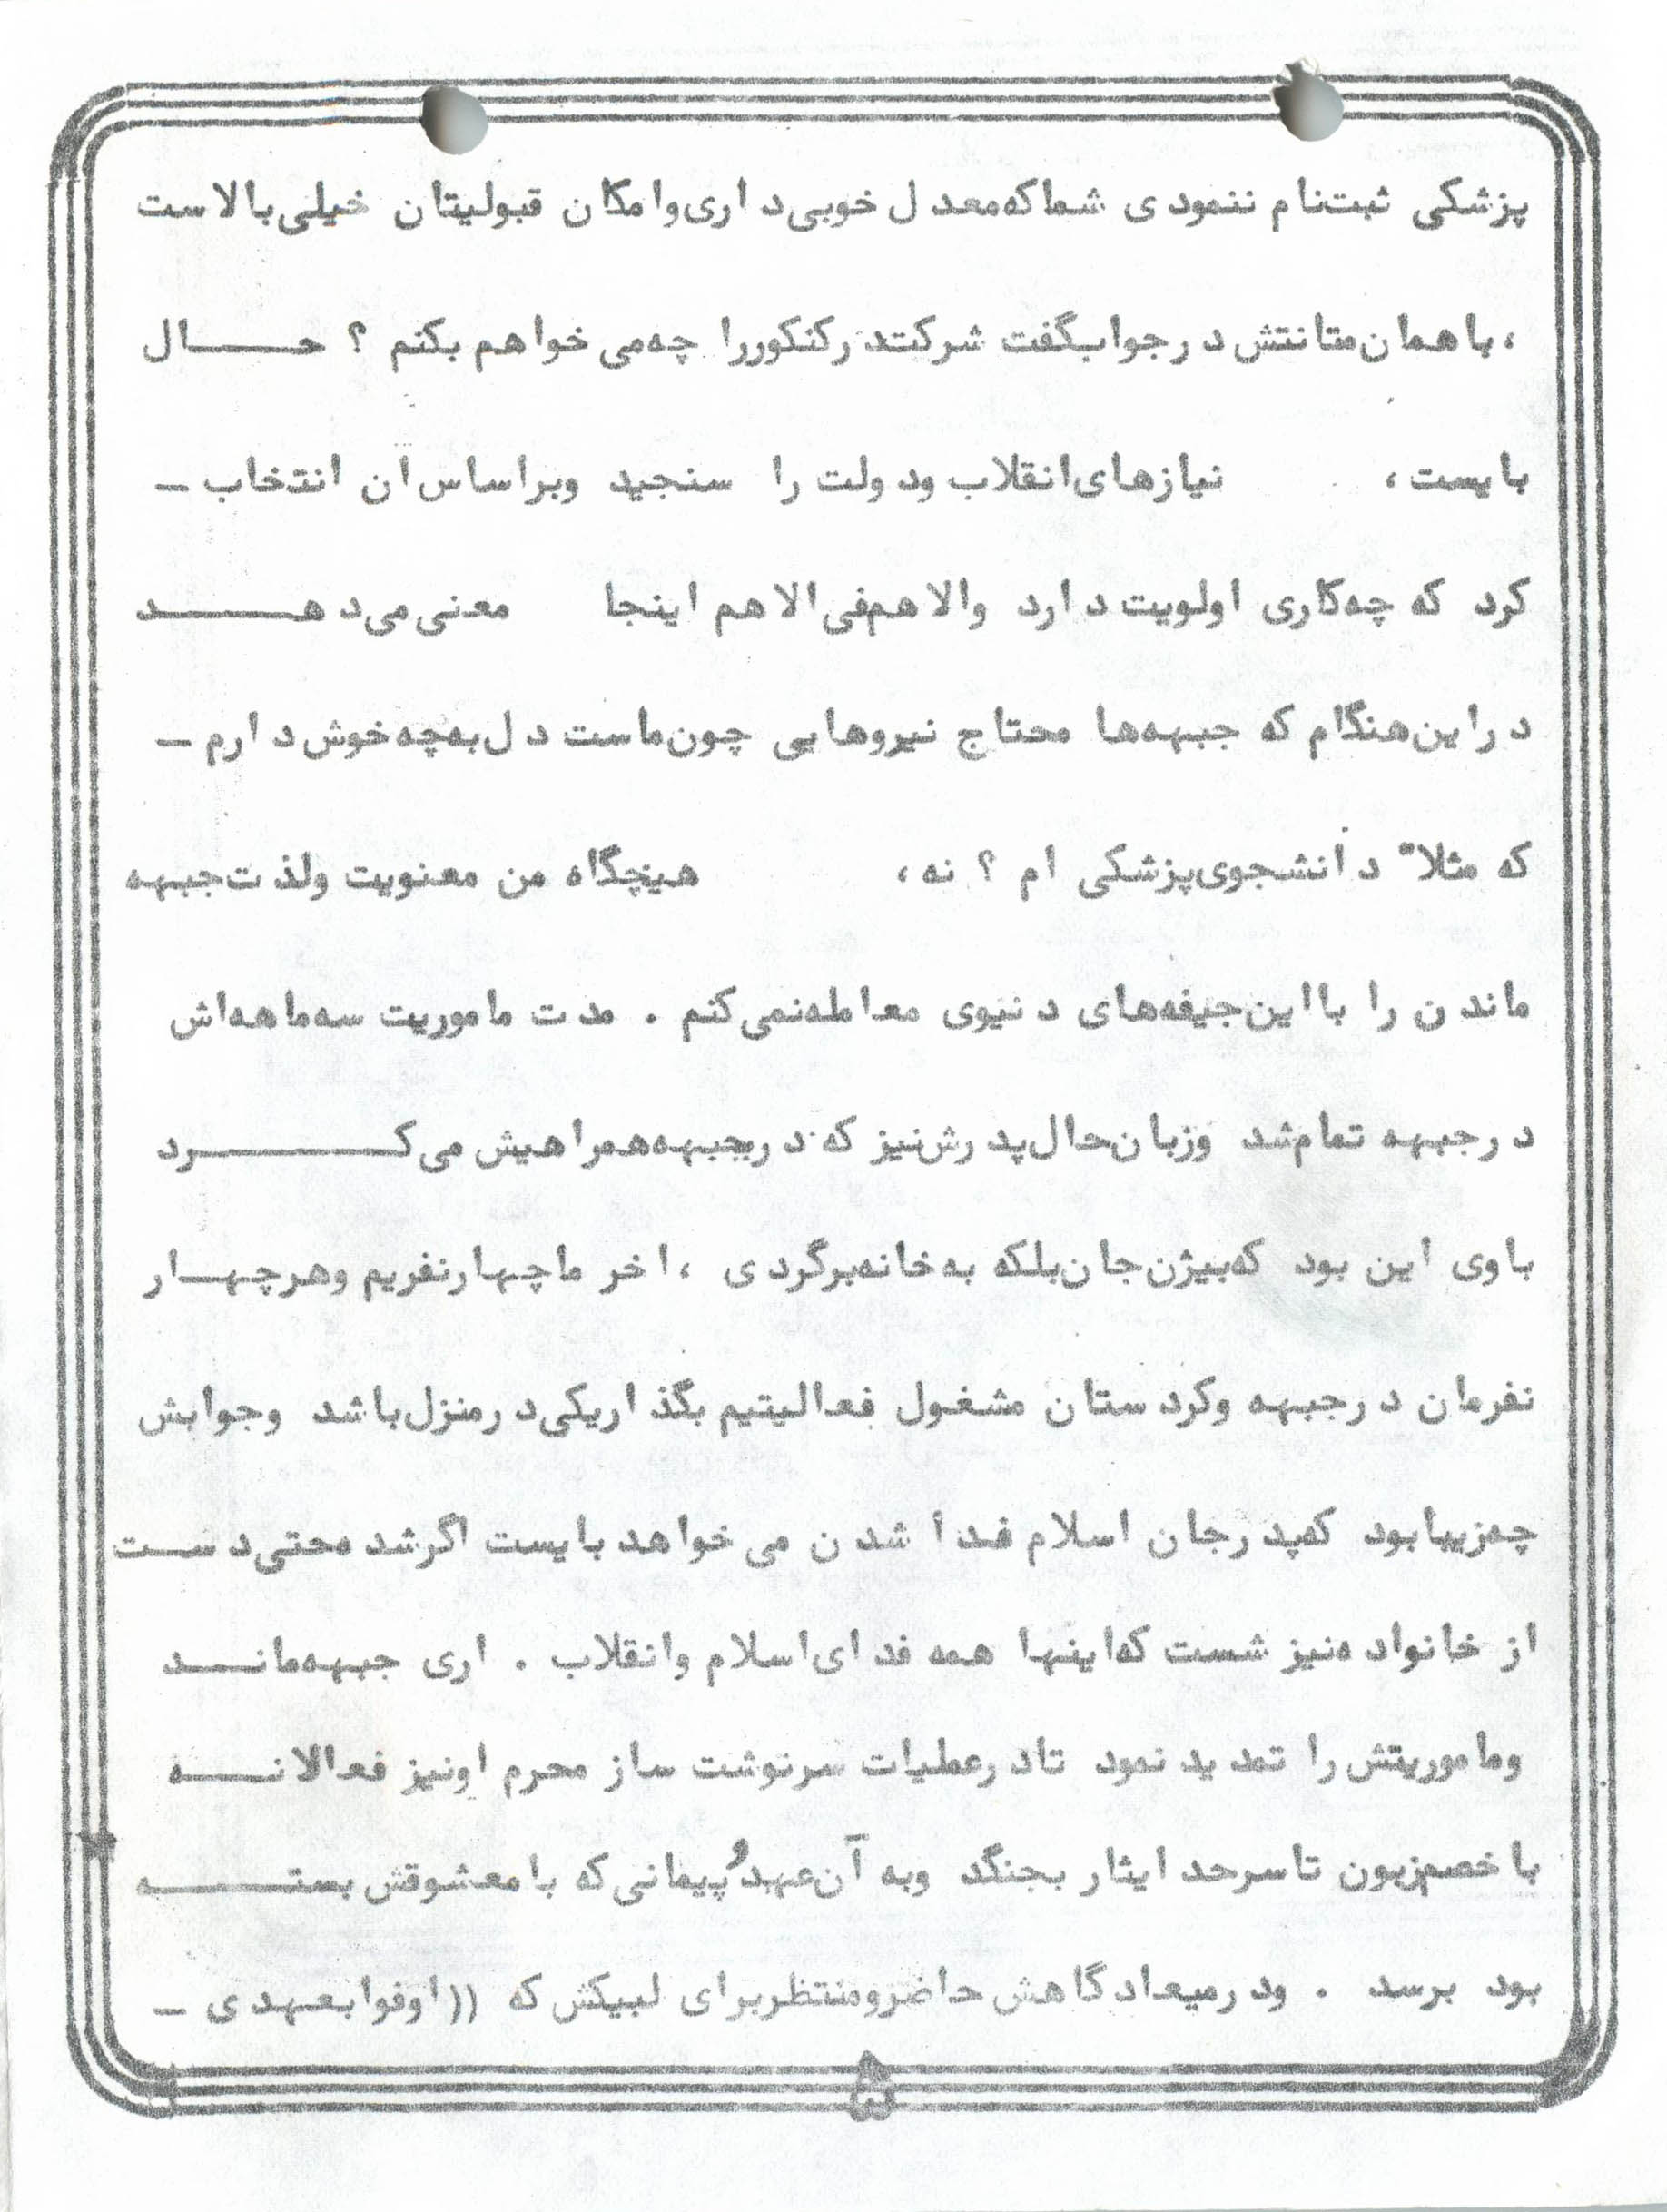 پزشکی ثبت‌نام ننمودی شماکه‌معدل خوبی‌داری‌وامکان قبولیتان خیلی‌بالاست
،باهمان‌متانتش درجواب‌گفت شرکت‌درکنکوررا چه‌می‌خواهم بکنم ؟ حــــال
بایست، نیازهای‌انقلاب ودولت را سنجید وبراساس‌ان انتخاب ـ
کرد که چه‌کاری اولویت دارد والاهم‌فی‌الاهم اینجا معنی‌می‌دهـــــد
دراین‌هنگام که جبهه‌ها محتاج نیروهایی چون‌ماست دل‌به‌چه‌خوش‌دارم ـ
که مثلا" دانشجوی‌پزشکی ام ؟ نه، هیچگاه من معنویت ولذت‌جبهه
ماندن را بااین‌جیفه‌های دنیوی معامله‌نمی‌کنم . مدت ماموریت سه‌ماهه‌اش
درجبهه تمام‌شد وزبان‌حال‌پدرش‌نیز که درجبهه‌همراهیش می‌کـــــــرد
باوی این بود که‌بیژن‌جان‌بلکه به‌خانه‌برگردی ،اخر ماچهارنفریم وهرچهــار
نفرمان درجبهه وکردستان مشغول فعالیتیم بگذاریکی‌درمنزل‌باشد وجوابش
چه‌زیبابود که‌پدرجان اسلام فدا شدن می‌خواهد بایست اگرشده‌حتی‌دســت
از خانواده‌نیز شست که‌اینها همه فدای‌اسلام وانقلاب . اری جبهه‌مانـــد
وماموریتش را تمدیدنمود تادرعملیات سرنوشت ساز محرم اونیز فعالانـــه
با خصم‌زبون تاسرحد ایثار بجنگد وبه آن‌عهدوپیمانی‌که بامعشوقش بستـــــه
بود برسد . ودرمیعادگاهش حاضرومنتظربرای لبیکش که ((اوفوا بعهدی ـ
۵